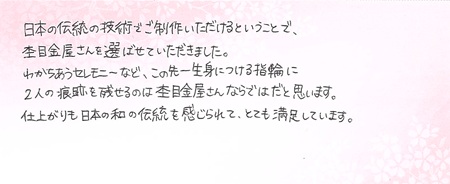 日本の伝統の技術でご制作いただけるということで、
杢目金屋さんを選ばせていただきました。
わかちあうセレモニーなど、この先一生身につける指輪に
2人の痕跡を残せるのは杢目金屋さんならではだと思います。
仕上がりも日本の和の伝統を感じられて、とても満足しています。